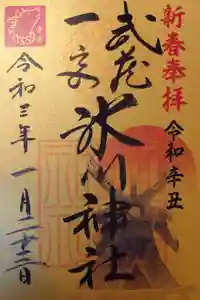 新春奉拝
令和辛丑
武蔵
一宮
氷川神社
令和三年一月二十三日